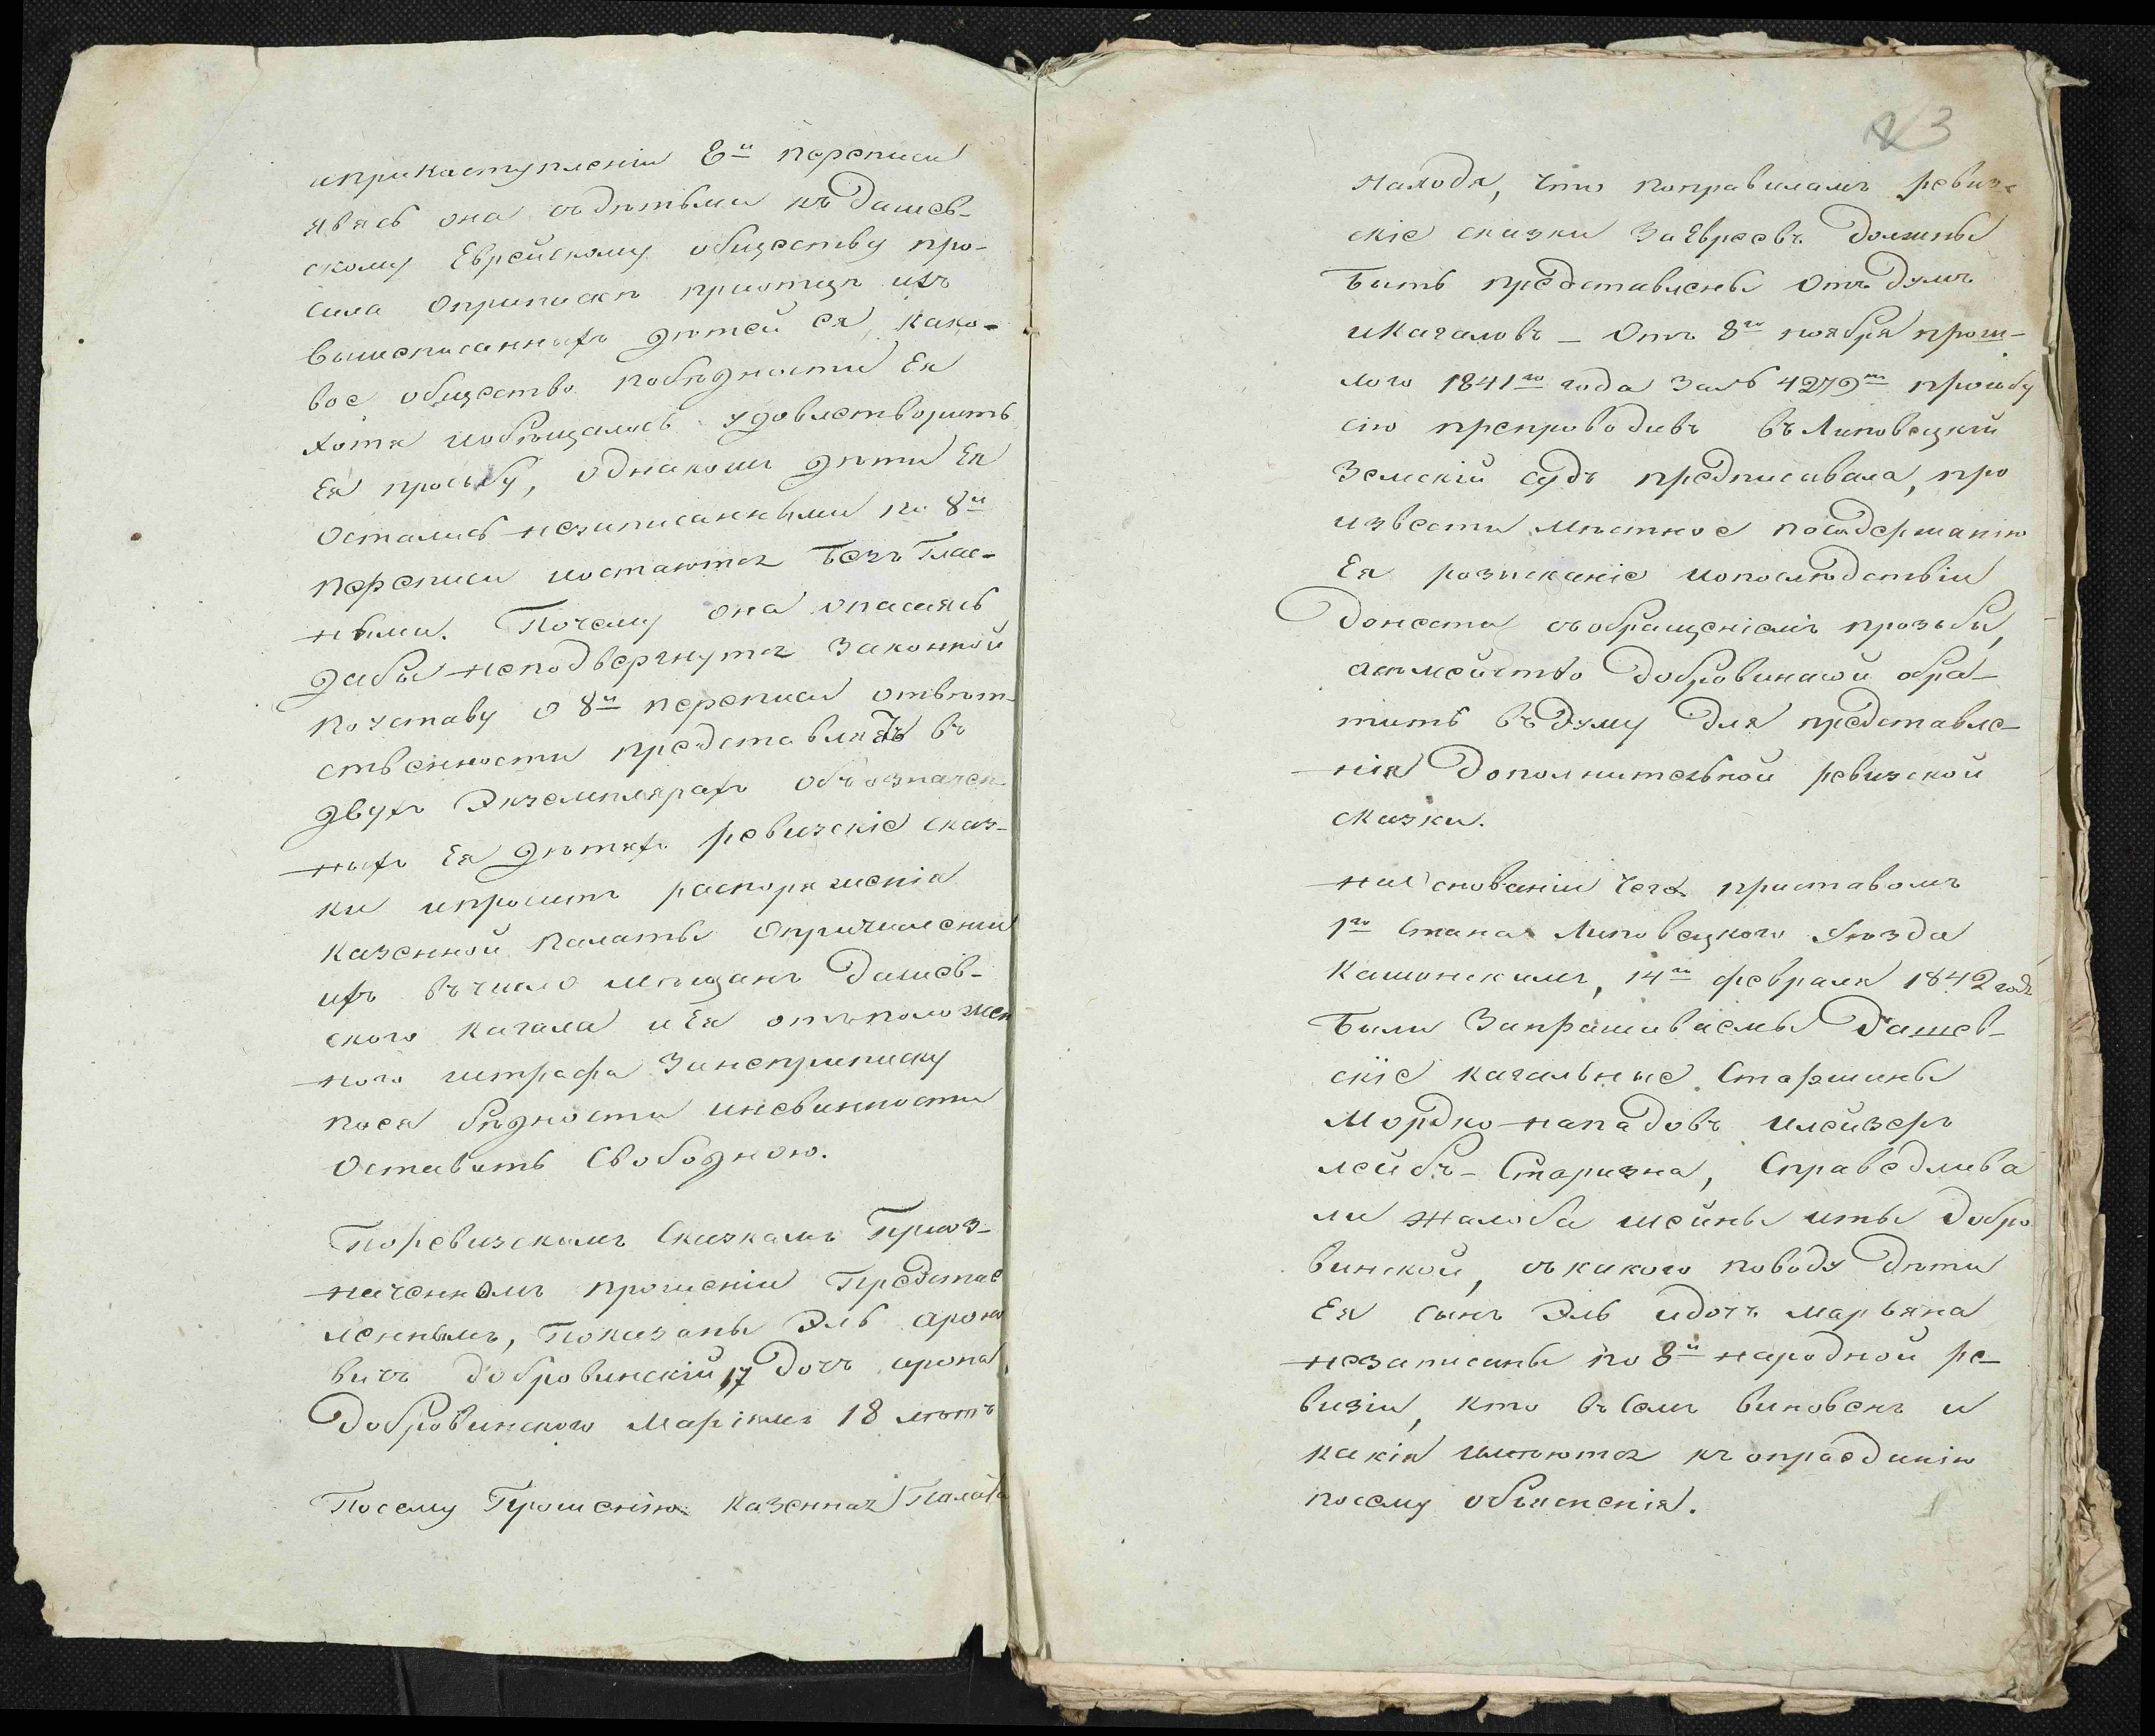 ипринаступленіи 8й переписи
явясь она съдѣтьми къ Дашев-
скому Еврейскому обществу про-
сила оприпискѣ приотцѣ ихъ
вышеписанныхъ дѣтей ея, како-
вое общество побѣдности Ея
хотя иобѣщалось удовлетворить
Ея просьбу, однакожъ дѣти Ея
остались незаписанными по 8й
переписи иостаются безъ Глас-
ными. Почему она опасаясь
дабы неподвергнутся Законной
поуставу о 8й переписи отвѣт-
ственности представляя въ
двухъ Экземплярахъ объозначен-
ныхъ Ея дѣтяхъ ревизскіе сказ-
ки ипроситъ распоряженія
казенной палаты опричисленіи
ихъ въчисло мѣщанъ Дашев-
ского кагала иЕя отъположен
ного штрафа Занеприписку
посей бѣдности иневинности
оставить Свободною.
Поревизскимъ Сказкамъ Приоз-
наченномъ прошеніи Представ
леннымъ, показаны Эль Ароно
вичъ Добровинскій 17 дочъ арона
Добровинского Маріямъ 18 лѣтъ
Посему Прошенію казенная Палата
23
находя, что поправиламъ ревиз-
скіе сказки ЗаЕвреевъ должны
быть представлены отъ Думъ
иКагаловъ – Отъ 8го ноября прош-
лого 1841го года За№ 4279м прозьбу
сію препроводивъ въ Липовецкій
Земскій судъ предписывала, про
извести мѣстное посодержанію
Ея розысканіе ипослѣдствіи
Донести съобращеніемъ прозьбы,
Добровинской обра-
тить въдуму для представле-
нія дополнительной ревизской
сказки.
наоснованіи чего приставомъ
1го Стана Липовецкого Уѣзда
Кашинскимъ, 14го февраля 1842 года
были Запрашиваемы Дашев-
скіе кагальные Старшины
Мордко нападовъ илейзеръ
лейбъ-Старизна, Справедлива
ли жалоба Добро
винской, съкакого поводу дѣти
Ея сынъ Эль идочъ Марьяна
незаписаны по 8й народной ре-
визіи, кто въ семъ виновенъ и
какія имѣются къ оправданію
посему объясненія.